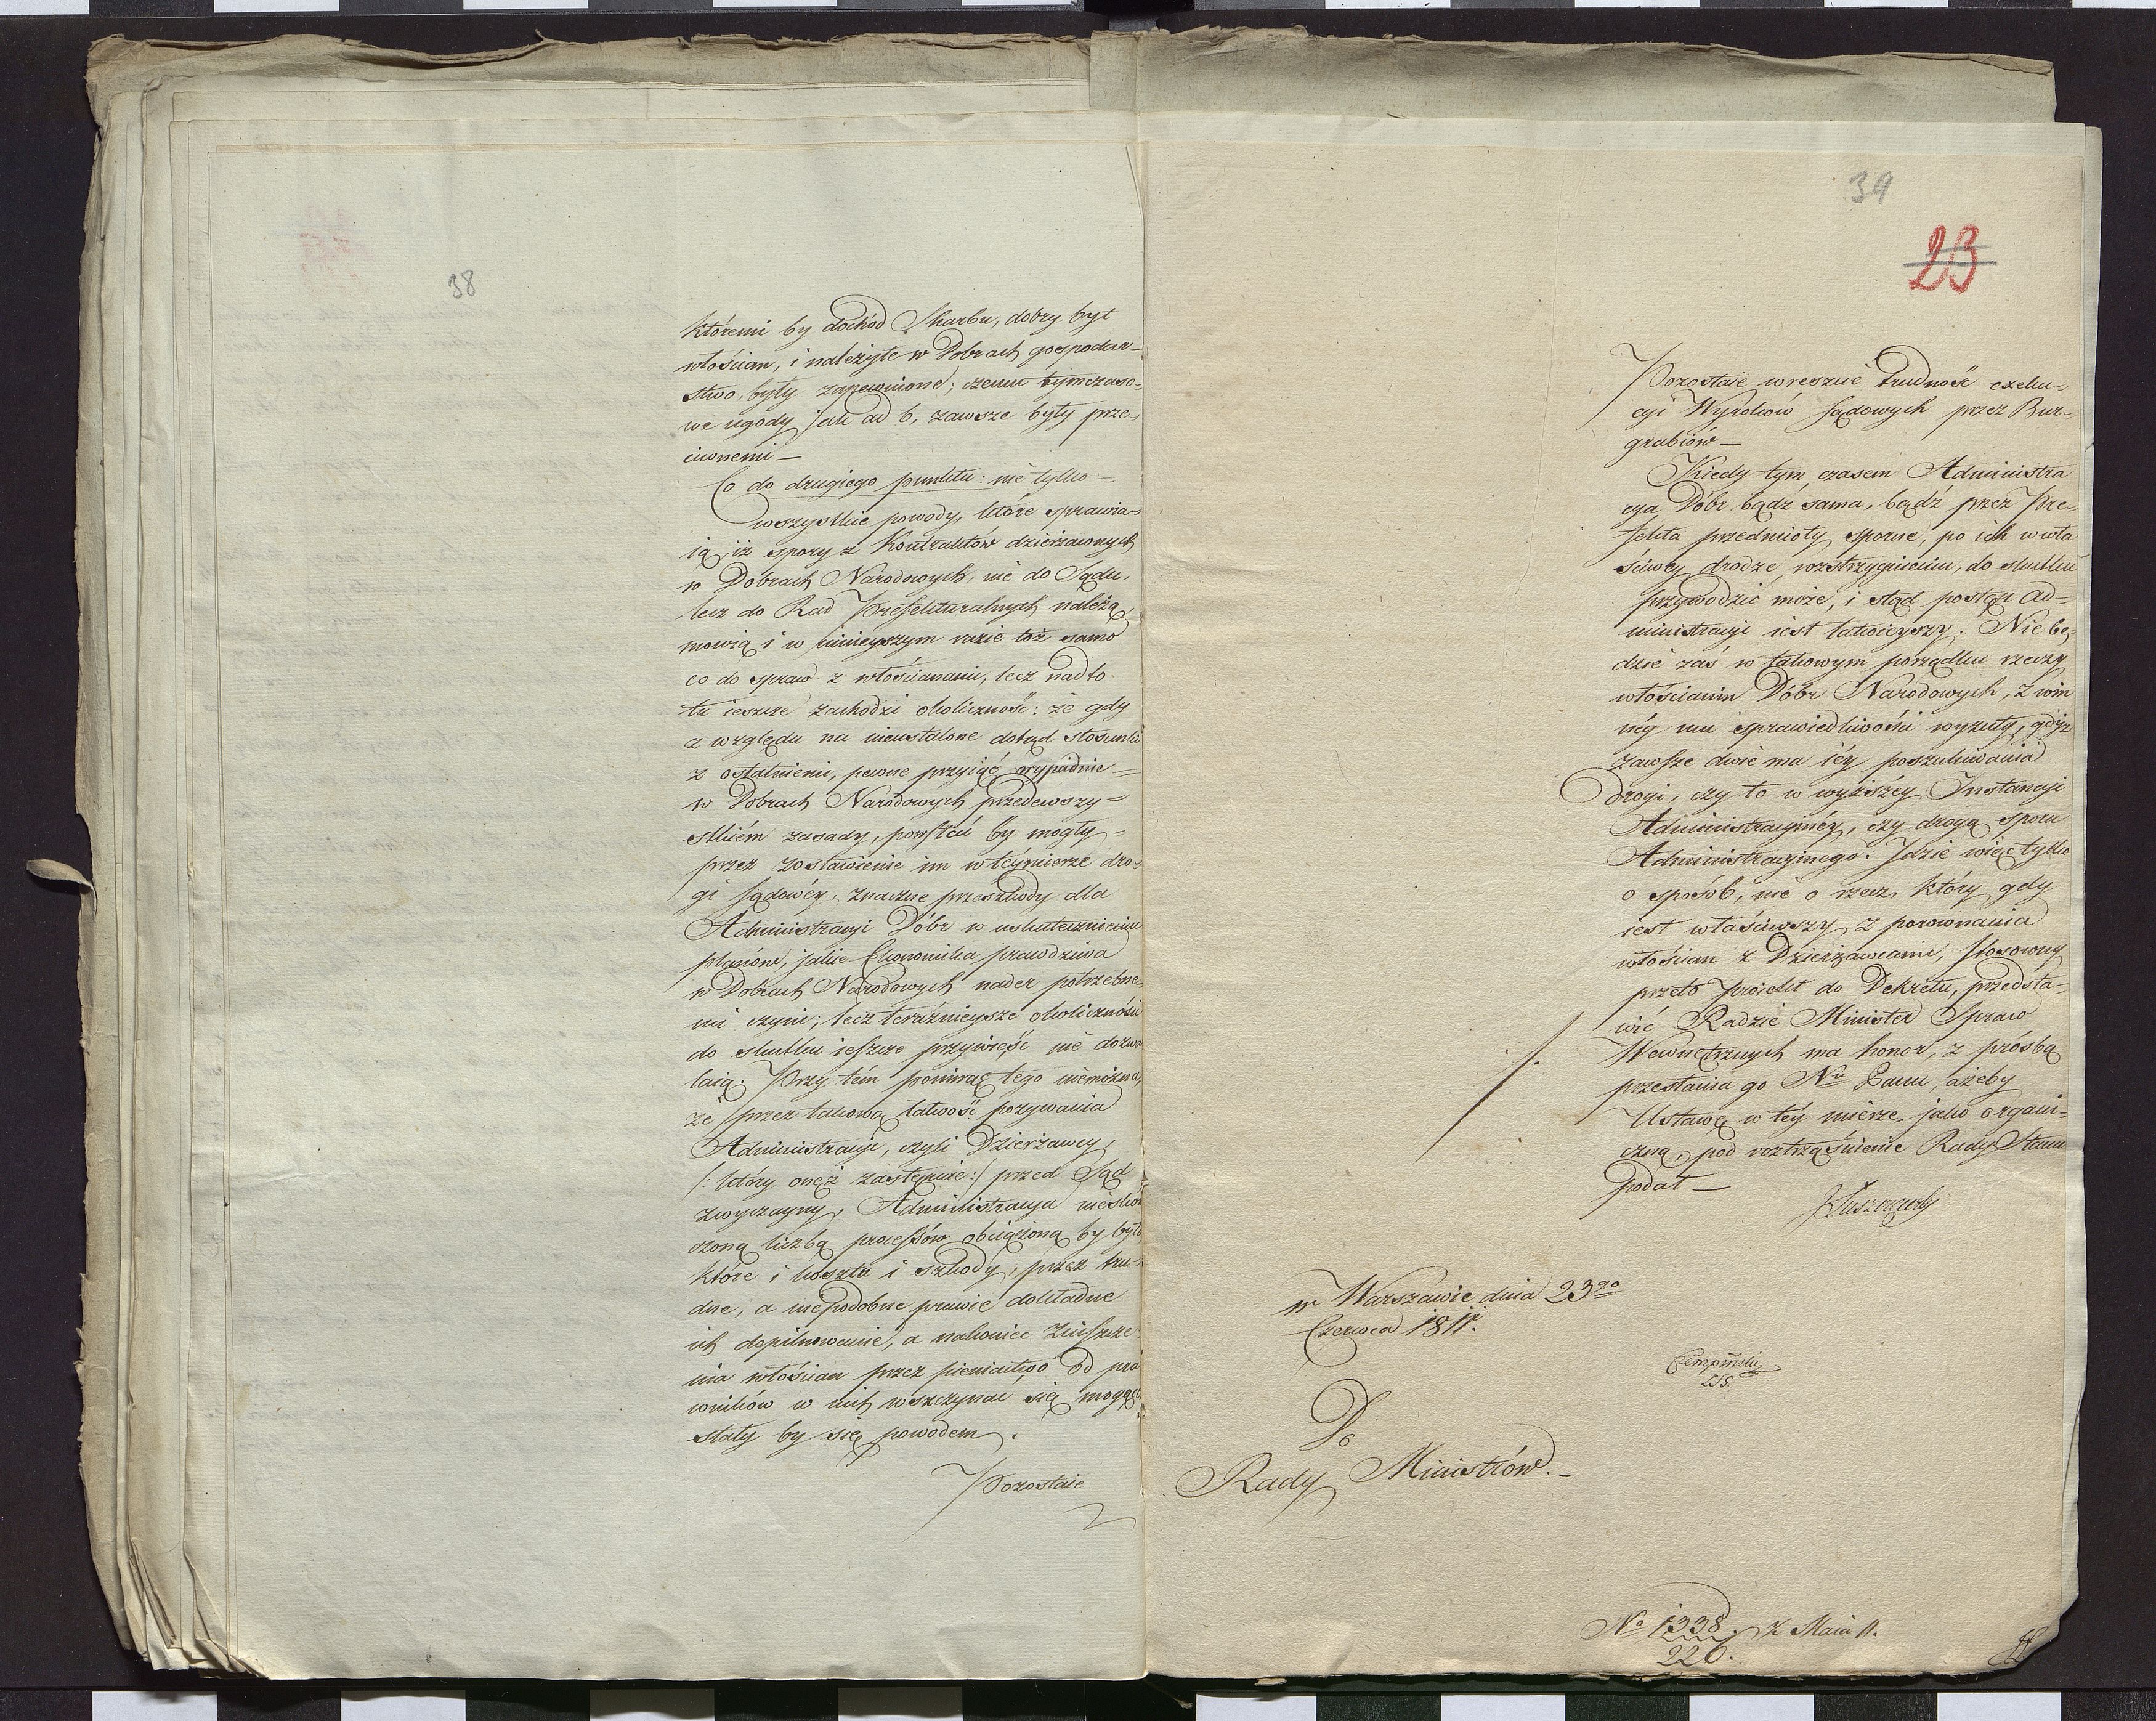 38
któremi by dochód Skarbu, dobry byt
włościan, i należyte w Dobrach gospodar-
stwo, były zapewnione; czemu tymczaso-
we ugody jak ad b, zawsze były prze-
ciwnemi —
Co do drugiego punktu: nie tylko —
wszystkie powody, które sprawia-
ią, iż spory z Kontraktów dzierżawnych
w Dobrach Narodowych, nie do Sądu,
lecz do Rad Prefekturalnych należą,
mowią i w ninieyszym razie toż samo
co do spraw z włościanami, lecz nadto
tu ieszcze zachodzi okoliczność: że gdy
z względu na nieustalone dotąd stosunki
z ostatniemi, pewne przyiąć wypadnie —
w Dobrach Narodowych przedewszy-
stkiém zasady, powstać by mogły —
przez zostawienie im w téymierze dro-
gi sądowéy, znaczne przeszkody dla
Administracyi Dóbr w uskutecznieniu
planów, jakie Ekonomika prawdziwa
w Dobrach Narodowych nader potrzebne-
mi czyni; lecz teraźnieysze okoliczności
do skutku ieszcze przywieść nie dozwa
laią. Przy tém pominąć tego niemożna,
że przez takową łatwość pozywania
Administracyi, czyli Dzierżawcy,
/: który onęż zastępuie :/ przed Sąd
zwyczayny, Administracya nieskoń
czoną liczbą processów obciążoną by była
które i koszta i szkody, przez tru-
dne, a niepodobne prawie dokładne
ich dopilnowanie, a nakoniec zniszcze
nia włościan przez pieniactwo od pra
wników w nich wszczynać się mogące
stały by się powodem.
Pozostaie
39
23
Pozostaie wreszcie trudność exeku-
cyi Wyroków sądowych przez Bur-
grabiów —
Kiedy tym czasem Administra
cya Dóbr bądź sama, bądź przez Pre-
fekta przedmioty sporne, po ich w wła
ściwey drodze rozstrzygnieniu, do skutku
przywodzić może, i stąd postęp ad-
ministracyi iest łatwieyszy. Nie bę-
dzie zaś w takowym porządku rzeczy
włościanin Dóbr Narodowych, z win
néy mu sprawiedliwości wyzuty, gdyż
zawsze dwie ma iéy poszukiwania
drogi, czy to w wyższéy Instancyi
Administracyinéy, czy drogą sporu
Administracyinego. Idzie więc tylko
o sposób, nie o rzecz, który gdy
iest właściwszy z porownania
włościan z Dzierżawcami, stosowny
przeto projekt do Dekretu, przedsta-
wić Radzie Minister Spraw
Wewnętrznych ma honor, z prósbą
przesłania go Nu Panu, ażeby
Ustawę w téy mierze, jako organi-
czną, pod roztrząśnienie Rady Stanu
podał —
J Łuszczewski
w Warszawie dnia 23go
Czerwca 1811.
Czempiński
Do
Rady Ministrów. —
No 1338. z Maia 11.
226.